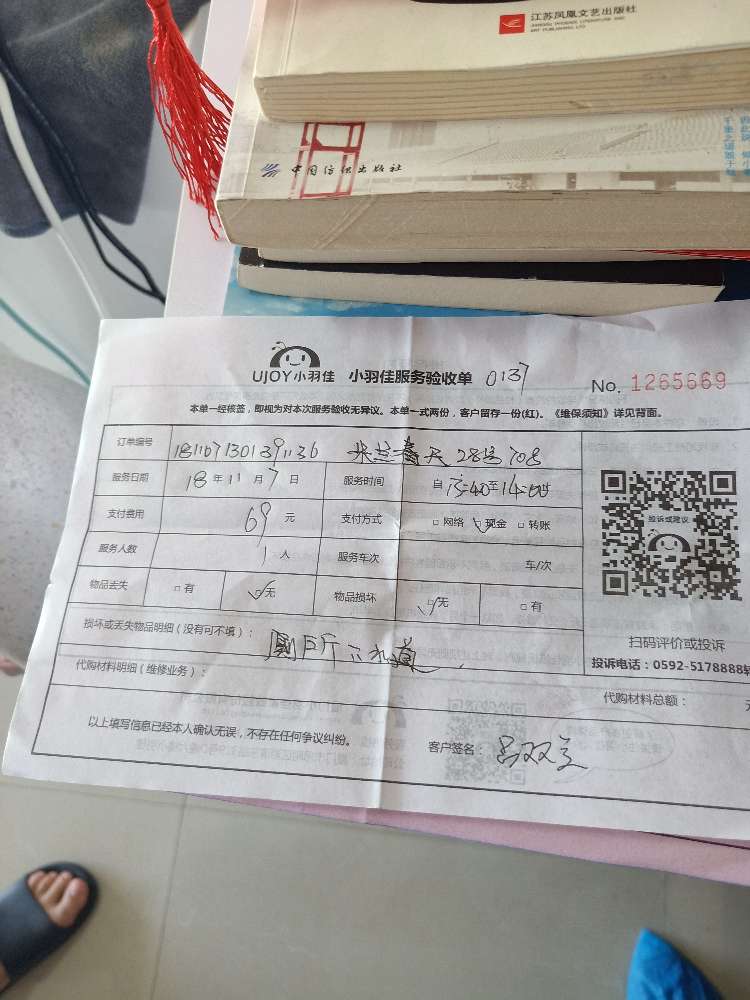 江苏凤凰文艺出版社
JIANGSU PHOENIX LITERATURE AND
ART PUBLISHING, LTD
中国纺织出版社
UJOY小羽佳 小羽佳服务验收单 0137 No. 1265669
本单一经核签，即视为对本次服务验收无异议。本单一式两份，客户留存一份(红)。《维保须知》详见背面。
订单编号 1811071301391136 米兰春天28号708
服务日期 18年11月7日 服务时间 自13:40至14:05
支付费用 69元 支付方式 □网络 ☑现金 □转账
服务人数 1人 服务车次 车/次
物品丢失 □有 ☑无 物品损坏 ☑无 □有
投诉或建议
损坏或丢失物品明细（没有可不填）： 厕所下水道
扫码评价或投诉
投诉电话：0592-5178888转
代购材料明细（维修业务）：
代购材料总额：
以上填写信息已经本人确认无误，不存在任何争议纠纷。 客户签名：吕双